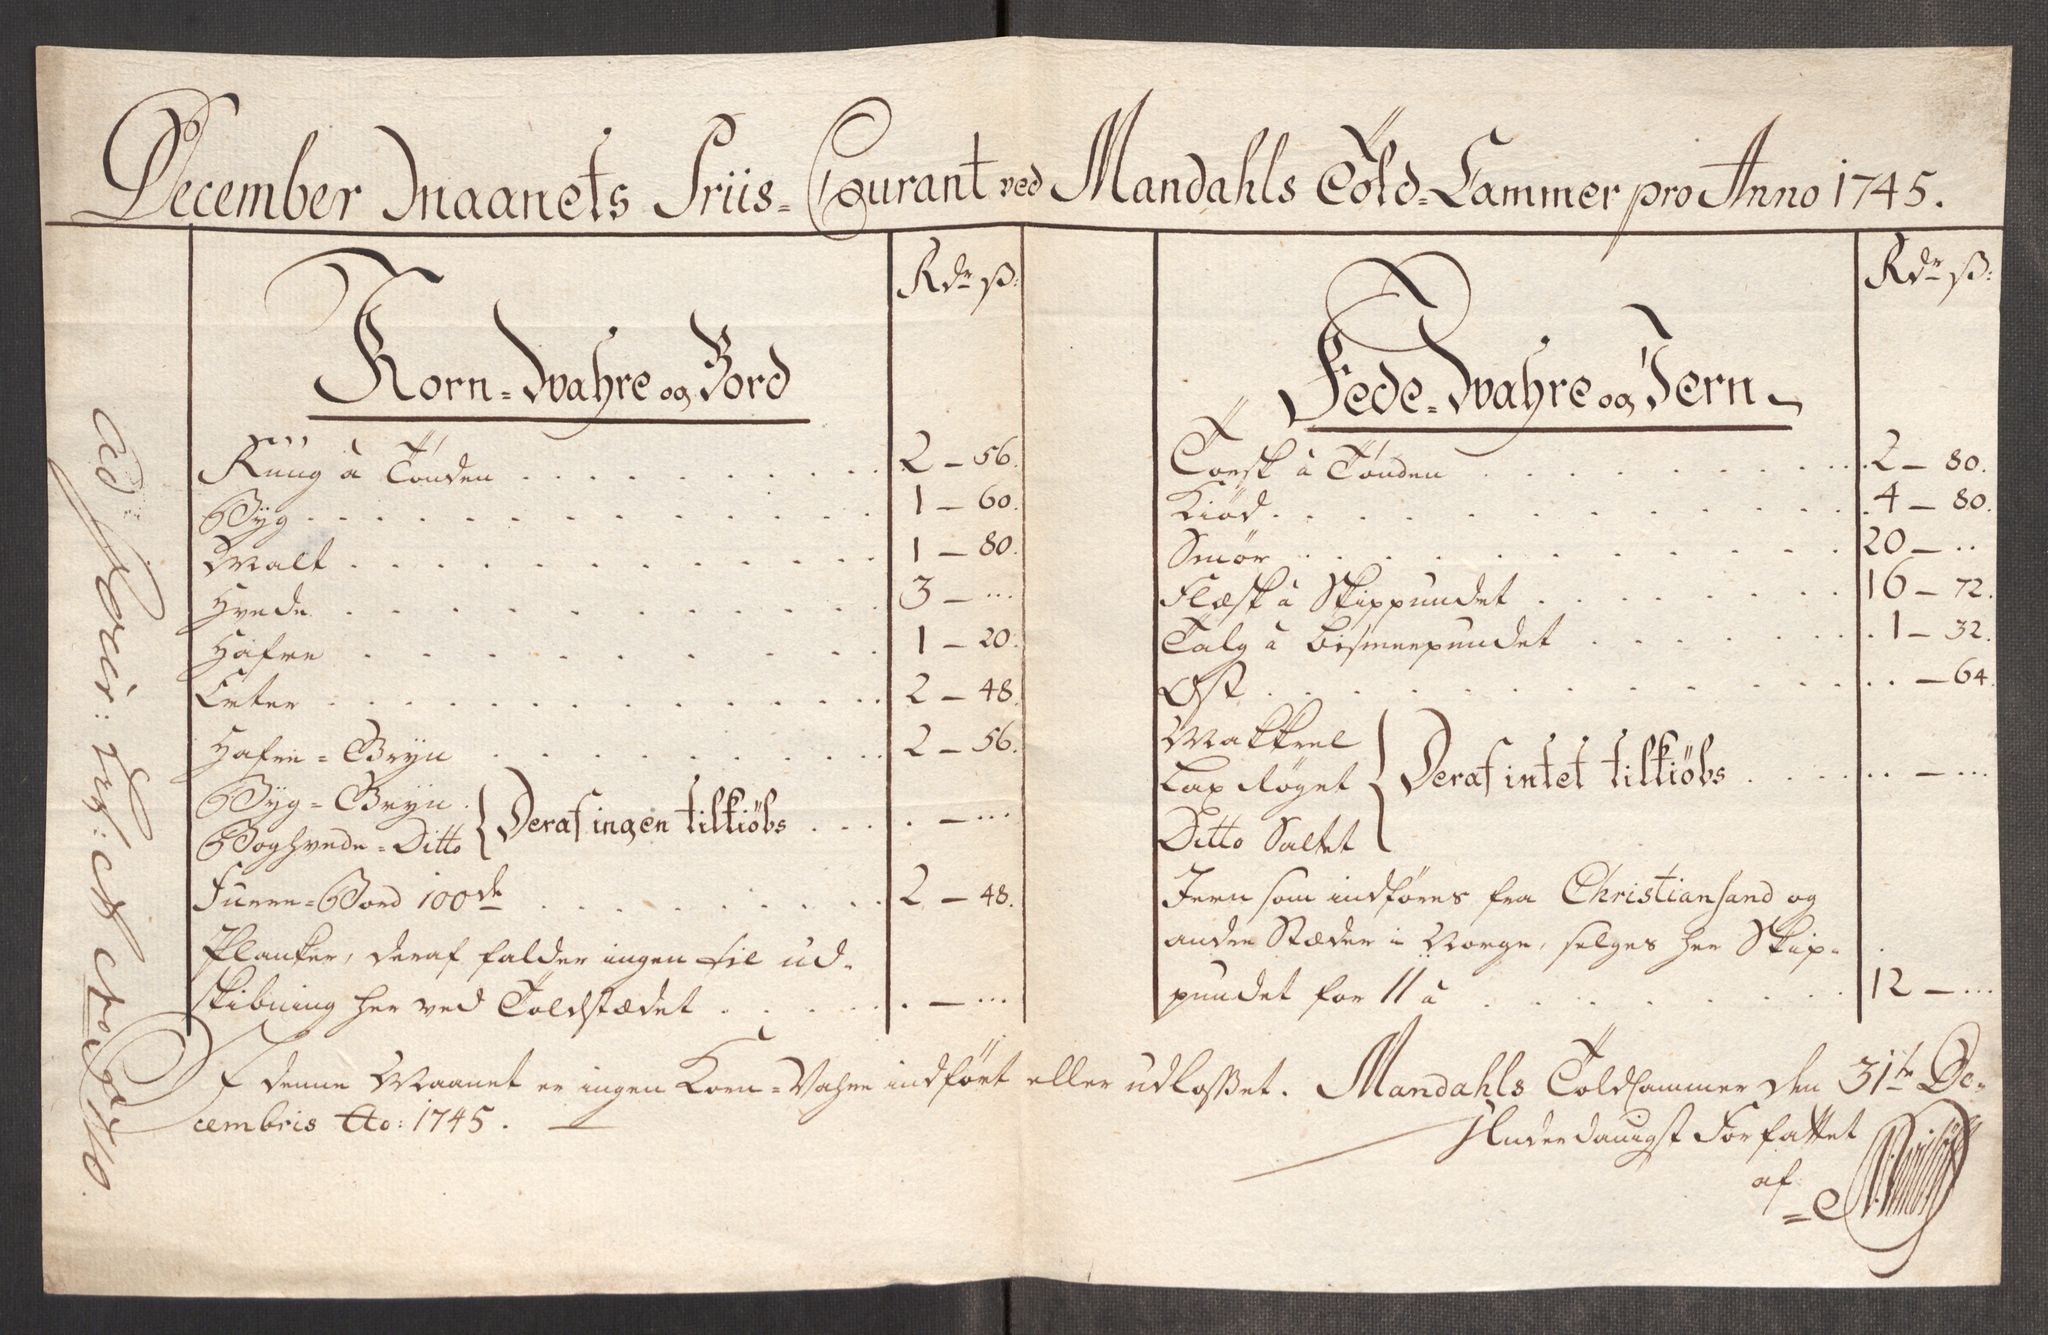 December Maanets Priis-Courant ved Mandahls Told-Cammer pro Anno 1745.
Rdr ß:
Korn-Wahre og Bord
Rüug à Tönden . . . . . . . . . . 2 – 56.
Byg . . . . . . . . . . . . . . . 1 – 60.
Malt . . . . . . . . . . . . . . 1 – 80.
Hvede . . . . . . . . . . . . . . 3 – ...
Hafre . . . . . . . . . . . . . . 1 – 20.
Erter . . . . . . . . . . . . . . 2 – 48.
Hafre-Gryn . . . . . . . . . . . 2 – 56.
Byg-Gryn.
Boghvede-Ditto } Deraf ingen tilkiöbs . . . . – ...
Furre-Bord 100de . . . . . . . . . 2 – 48.
Planker, deraf falder ingen til ud-
skibning her ved Toldstædet . . . . . – ...
Rdr ß:
Fede-Wahre og Jern
Torsk à Tönden . . . . . . . . . . 2 – 80.
Kiöd . . . . . . . . . . . . . . . 4 – 80.
Smör . . . . . . . . . . . . . . 20 – ..
Flæsk à Skippundet . . . . . . . . 16 – 72.
Talg à Bismerpundet . . . . . . . . 1 – 32.
Ost . . . . . . . . . . . . . . . – 64.
Makkrel
Lax Röget } Deraf intet tilkiöbs . . . . . – ...
Ditto Saltet
Jern som indföres fra Christiansand og
andre Stæder i Norge, selges her Skip-
pundet for 11 à . . . . . . . . . 12 – ...
I denne Maanet er ingen Korn-Vahre indfört eller udlosset. Mandahls Toldcammer den 31te De-
cembris Ao: 1745.
Underdanigst Forfattet
af